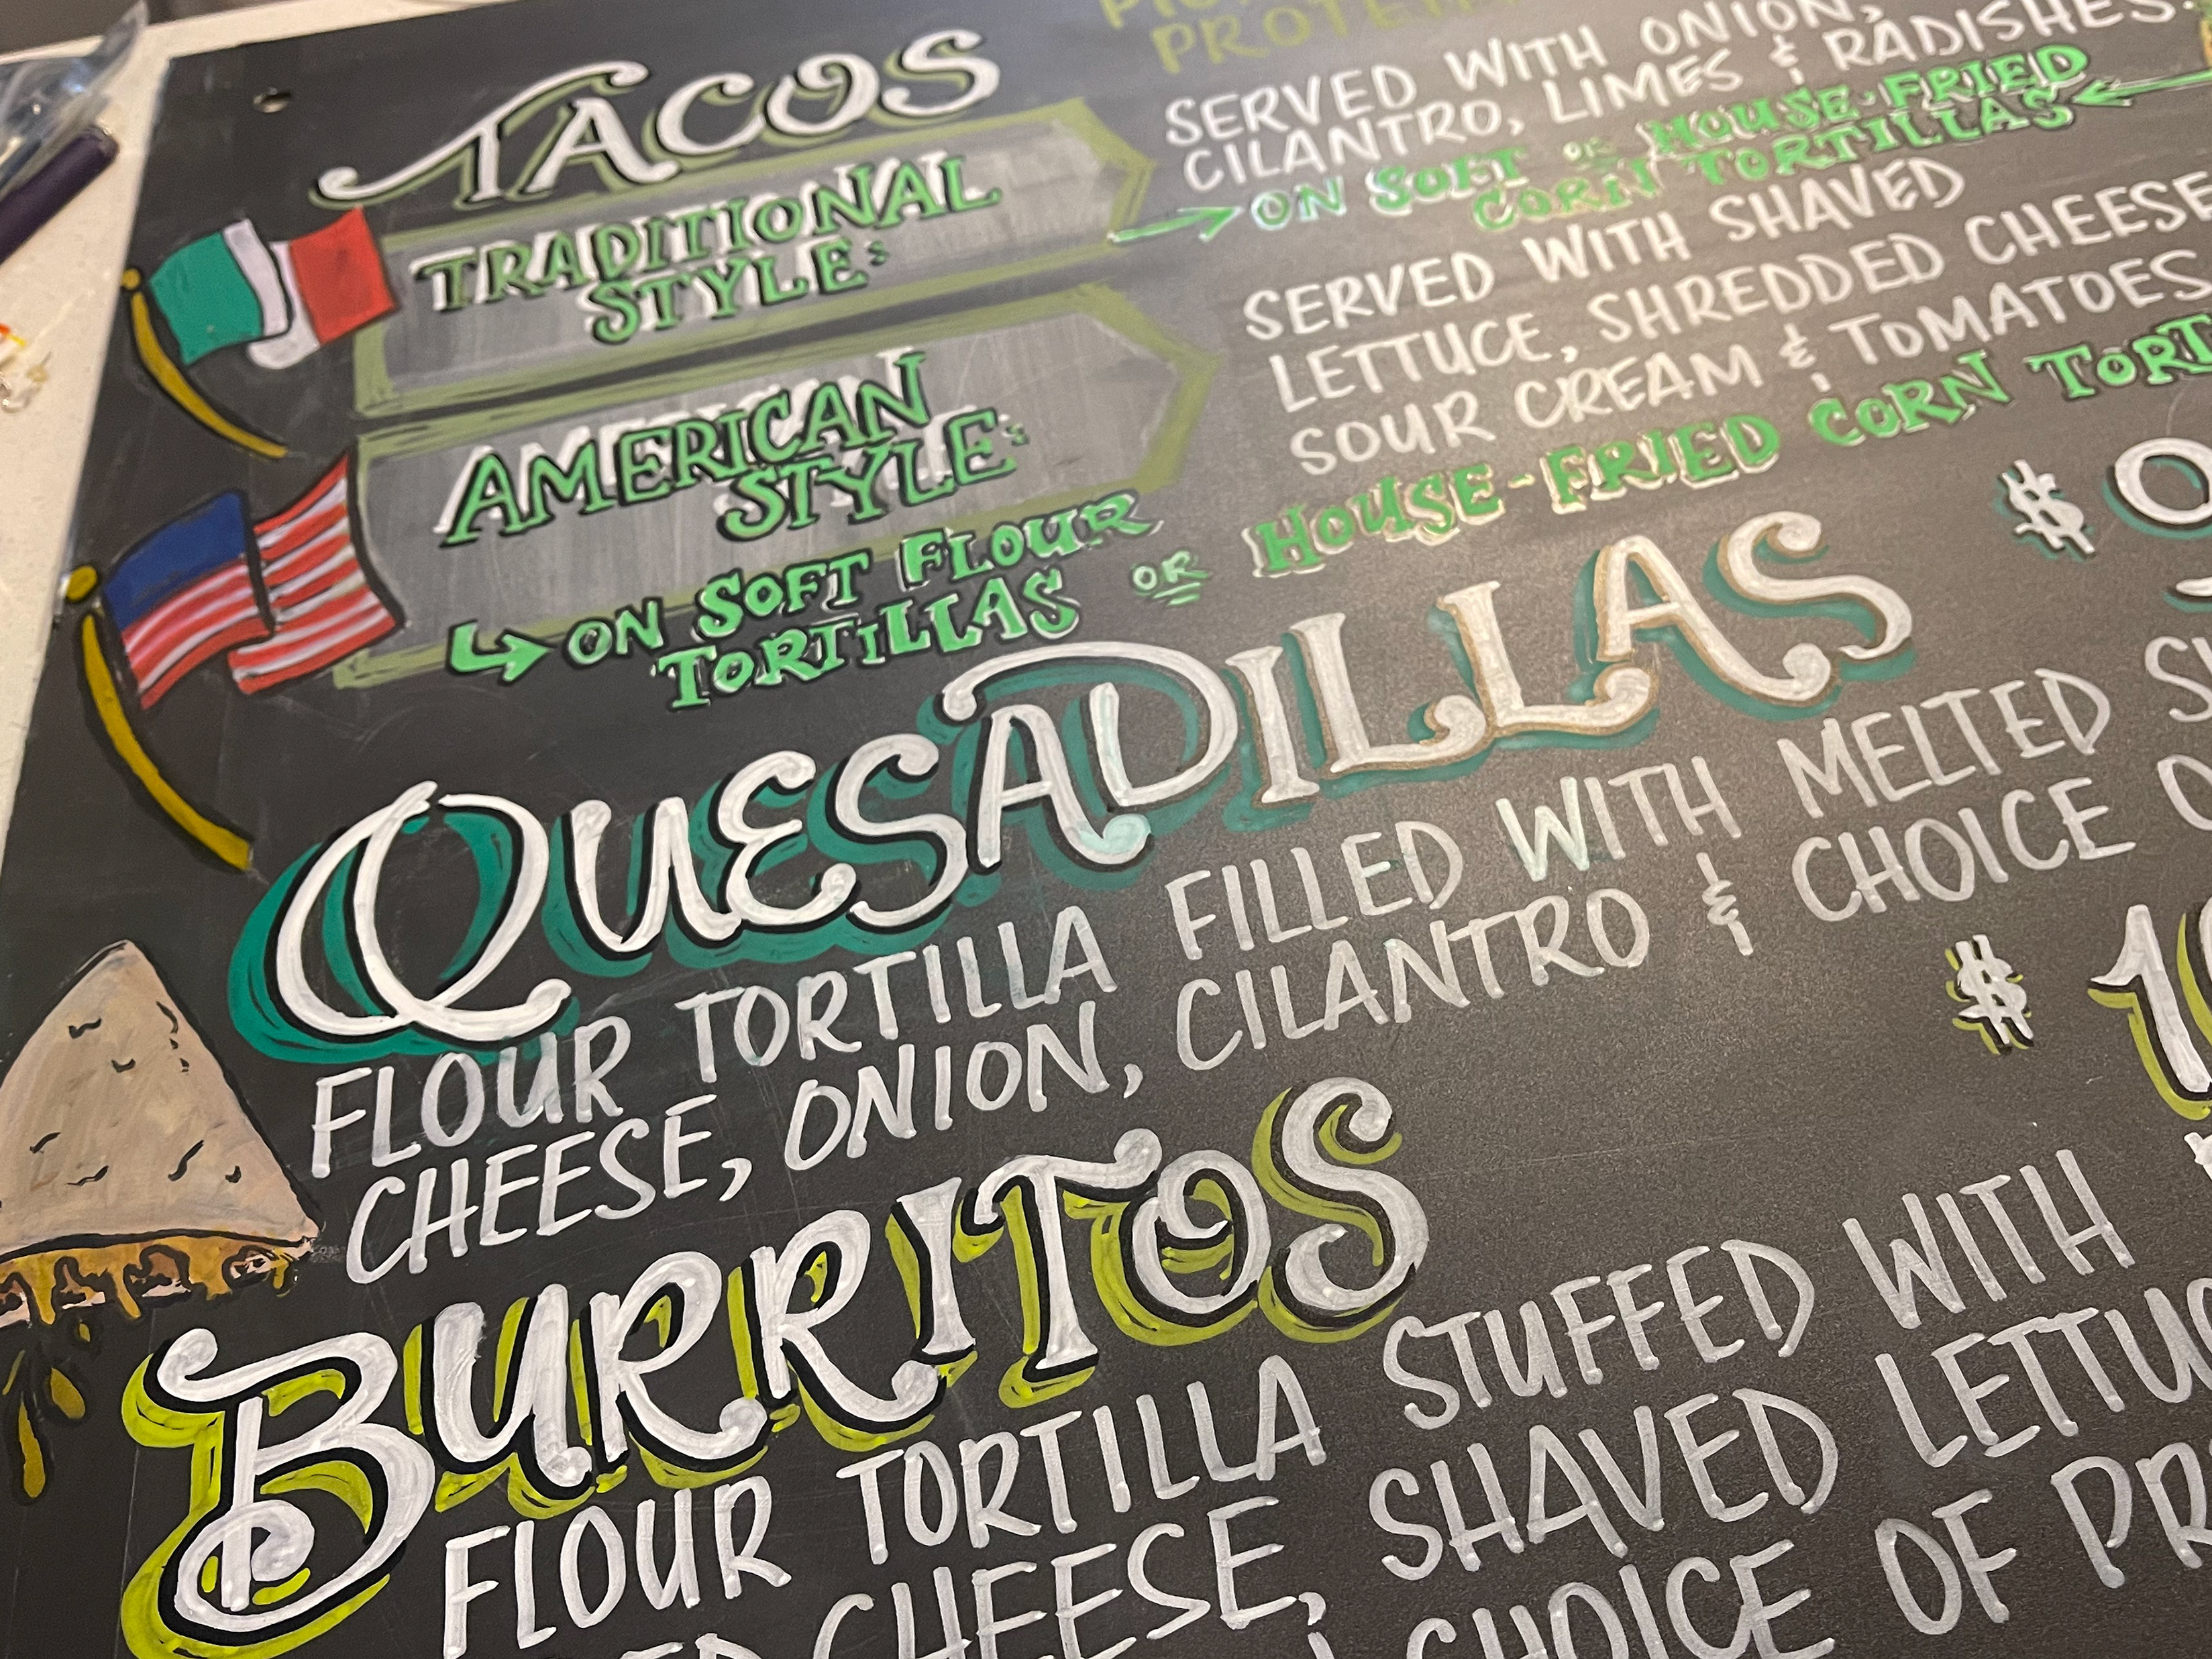 TACOS
PROTEIN
TRADITIONAL
STYLE:
SERVED WITH ONION,
CILANTRO, LIMES & RADISHES.
ON SOFT OR HOUSE-FRIED
CORN TORTILLAS
AMERICAN
STYLE:
SERVED WITH SHAVED
LETTUCE, SHREDDED CHEESE
SOUR CREAM & TOMATOES
ON SOFT FLOUR
TORTILLAS OR HOUSE-FRIED CORN TORT
QUESADILLAS $
FLOUR TORTILLA FILLED WITH MELTED
CHEESE, ONION, CILANTRO & CHOICE
BURRITOS $ 1
FLOUR TORTILLA STUFFED WITH
CHEESE, SHAVED LETTU
CHOICE OF PR